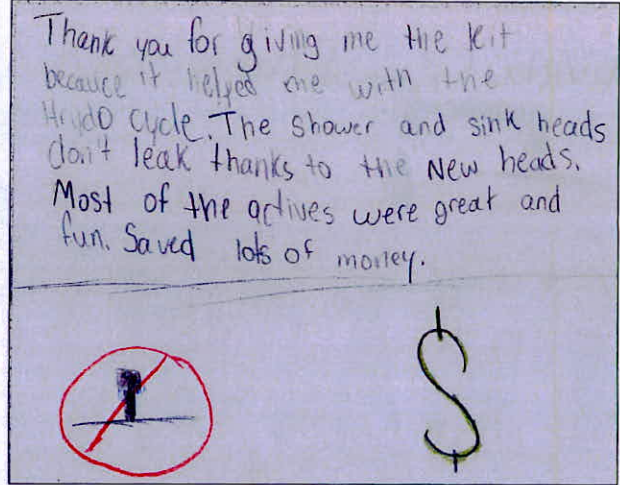 Thank you for giving me the kit
because it helped me with the
Hrydo cycle. The shower and sink heads
don't leak thanks to the New heads.
Most of the actives were great and
fun. Saved lots of money.
$